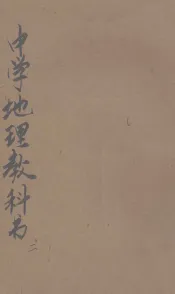 中学地理教科书二